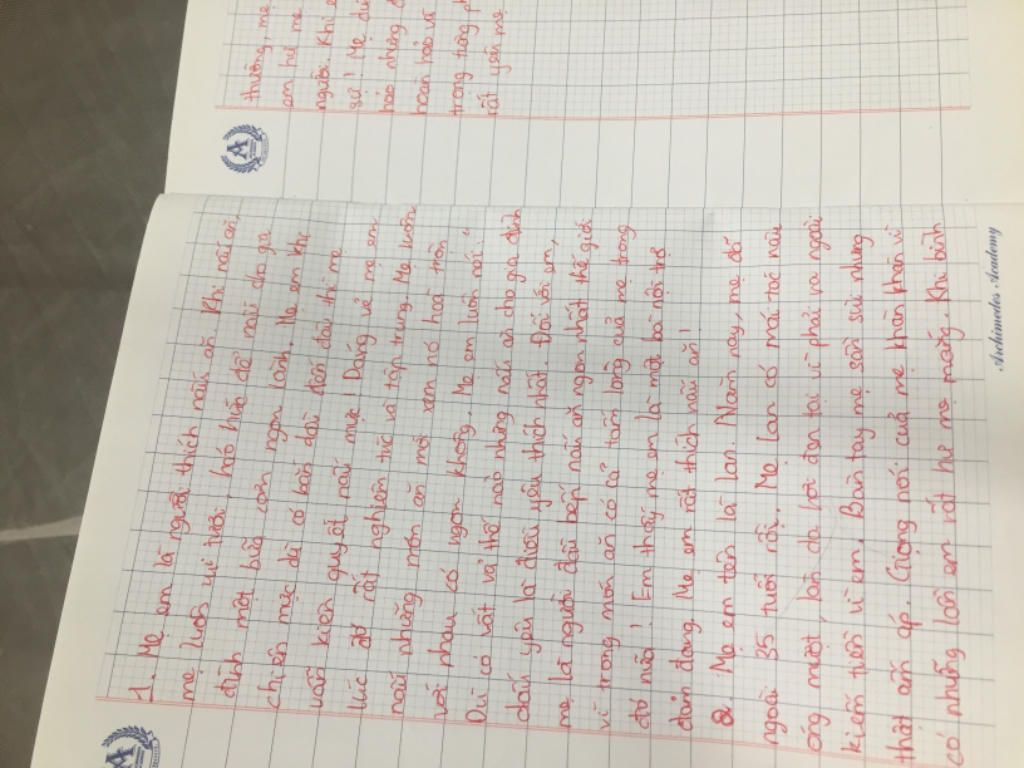 1. Mẹ em là người thích nấu ăn. Khi nấu ăn,
mẹ luôn vui tười, háo hức để mời cho gia
định một bữa cơm ngon lành. Mẹ em khi
chiên mực dù có bắn dầu đến đâu thì mẹ
vẫn kiên quyết nấu mực! Dáng vẻ mẹ em
lúc đó rất nghiêm túc và tập trung. Mẹ luôn
nấu những món ăn mới xem nó hoà trộn
với nhau có ngon không. Mẹ em luôn nói: "
Dù có vất vả thế nào nhưng nấu ăn cho gia định
thân yêu là điều yêu thích nhất. Đối với em,
mẹ là người đầu bếp nấu ăn ngon nhất thế giới
vì trong món ăn có cả tấm lòng của mẹ trong
đó nữa! Em thấy mẹ em là một bà nội trợ
đảm đang. Mẹ em rất thích nấu ăn!
2. Mẹ em tên là Lan. Năm nay, mẹ đã
ngoài 35 tuổi rồi. Mẹ Lan có mái tóc nâu
óng mượt, làn da hơi đen tại vì phải ra ngoài
kiếm tiền vì em. Bàn tay mẹ sần sùi nhưng
thật ấm áp. Giọng nói của mẹ khàn khàn vì
có những lần em rất hư mẹ mắng. Khi bình
thường, mẹ
em hư mẹ
người. Khi e
sự! Mẹ dù
hảo nhưng đ
hoàn hảo và
trong từng ph
rất yêu mẹ
Archimedes Academy